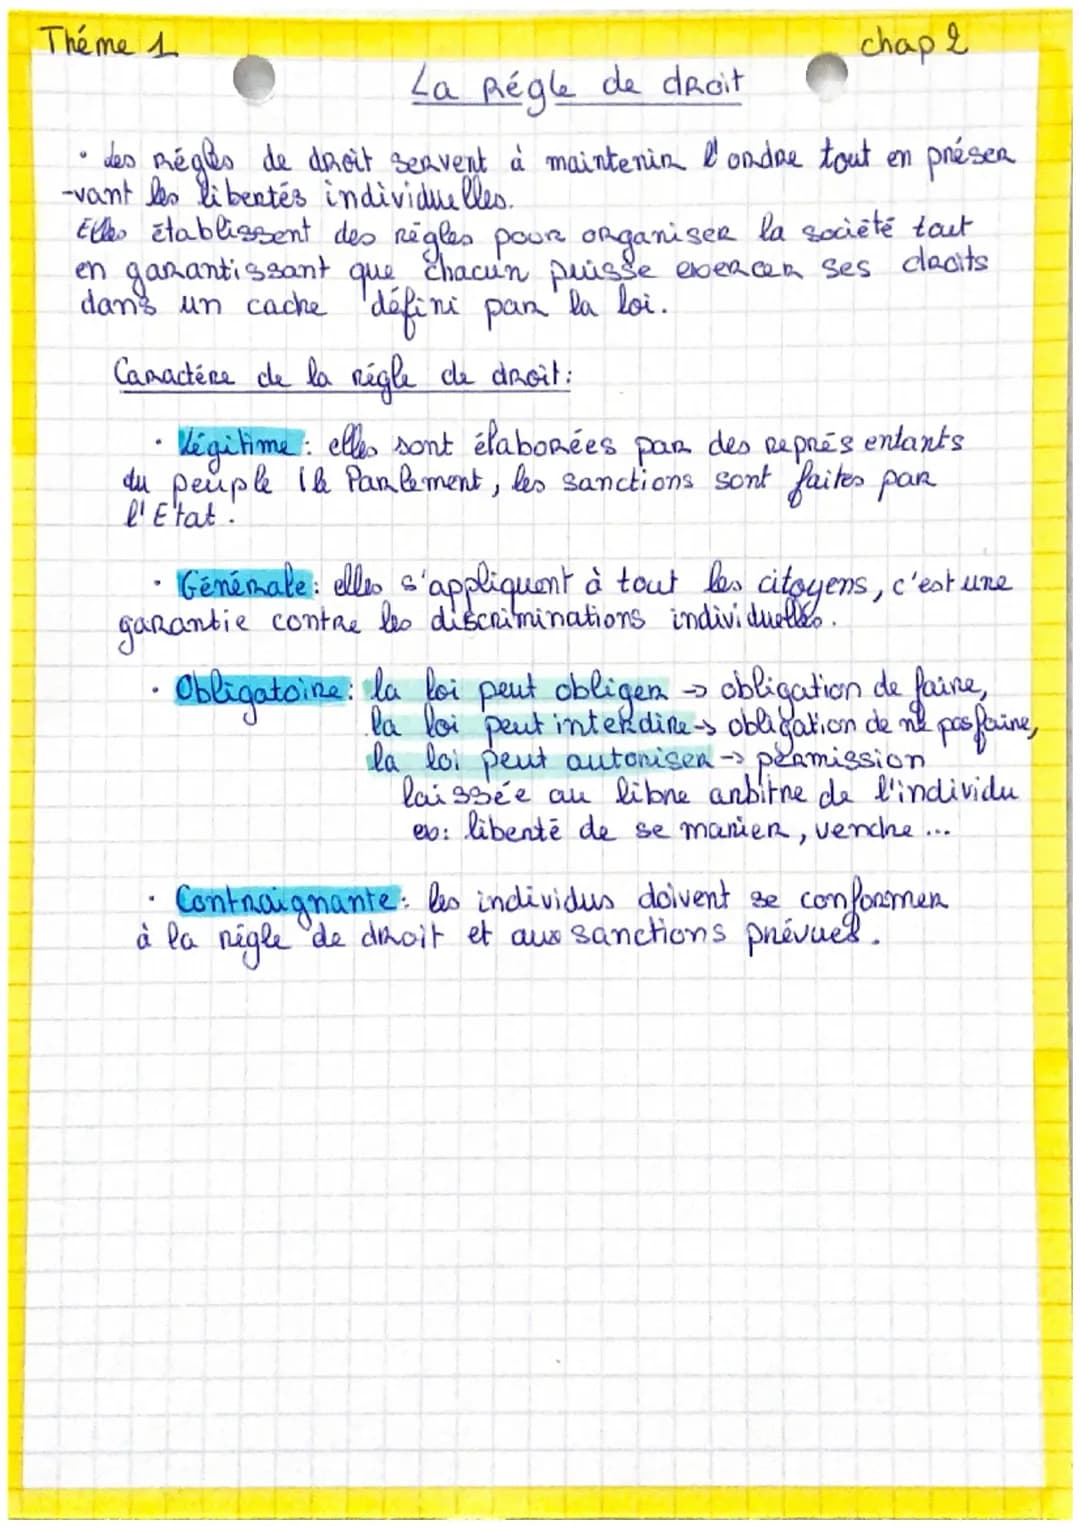 Théme 1
chap 2
La Régle de droit
• des régles de droit servent à maintenir l'ordre tout en préser
-vant les libertés individuelles.
Elles établissent des régles pour organiser la société tout
en garantissant que chacun puisse exercer ses droits
dans un cadre défini par la loi.
Caractére de la régle de droit:
• Légitime: elles sont élaborées par des représentants
du peuple (le Parlement, les sanctions sont faites par
l'Etat.
• Générale: elles s'appliquent à tout les citoyens, c'est une
garantie contre les discriminations individuelles.
• Obligatoire: la loi peut obliger → obligation de faire,
la loi peut interdire → obligation de ne pas faire,
la loi peut autoriser → permission
laissée au libre arbitre de l'individu
ex: liberté de se marier, vendre ...
• Contraignante: les individus doivent se conformer
à la régle de droit et aux sanctions prévues.